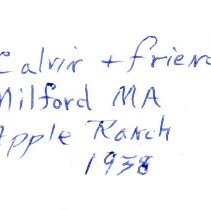 Calvin + friend
Milford MA
Apple Ranch
1938